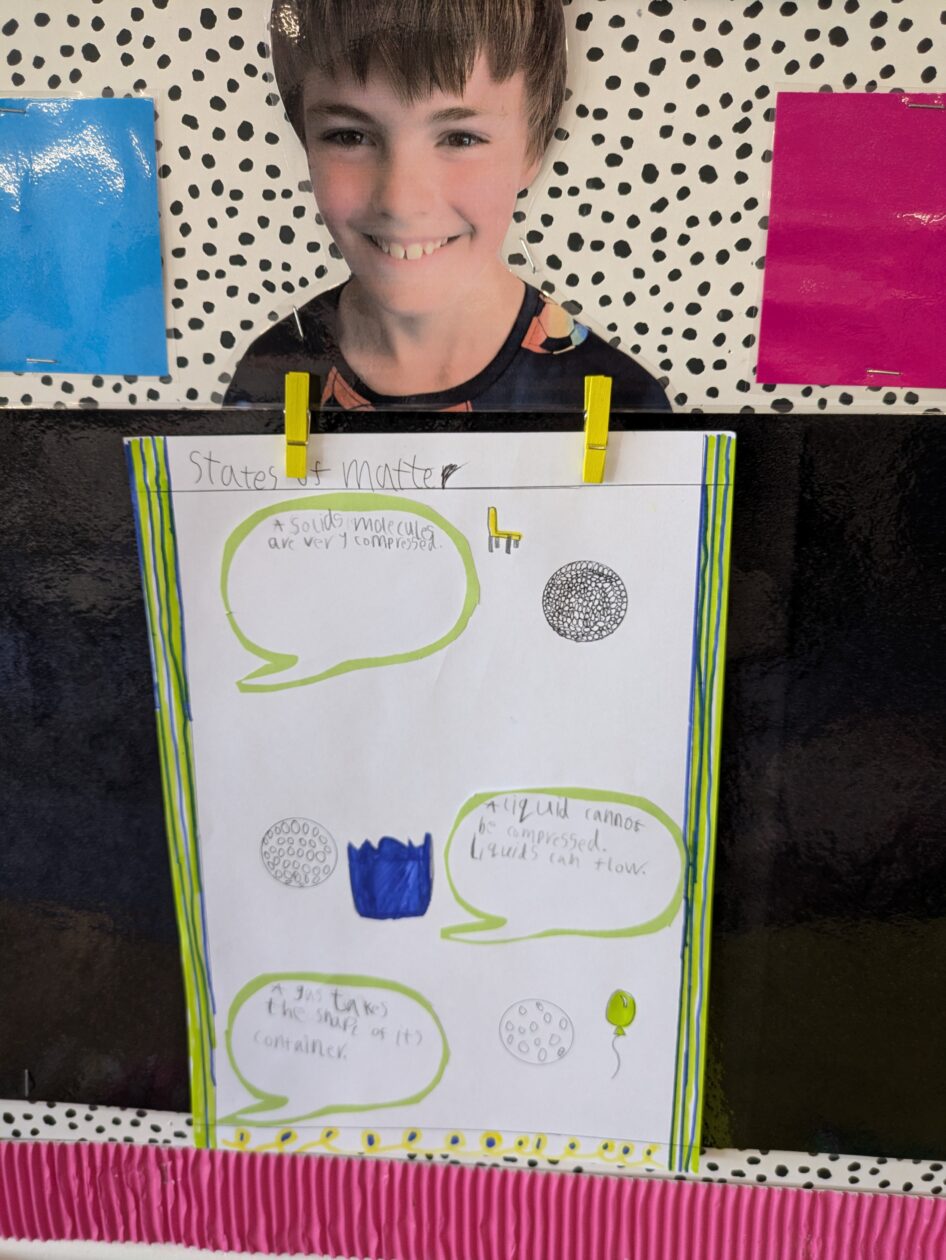 States of matter
A solids molecules
are very compressed.
A liquid cannot
be compressed.
Liquids can flow.
A gas takes
the shape of its
container.